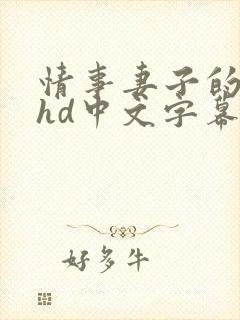 情事妻子的
hd中文字幕
好多牛